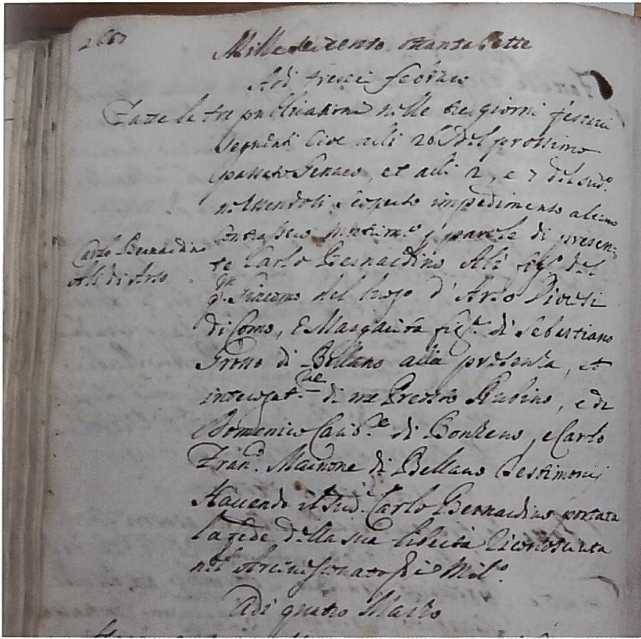 1687
Mille seicento ottanta sette
Adi tredeci febraro
Fatte le tre publicationi nelle tre giorni festivi
seguenti cioe alli 26 del prossimo
passato Genaro, et alli 2, e 7 del sud.º
non havendosi scoperto impedimento alcuno
Contrassero matrim.º p parole di presen
Carlo Bernardino
te Carlo Bernardino Ali fig.º del
Ali di Arto
q. Giacomo del luogo d'Arto Diocesi
di Como, e Margarita fig.ª di Sebastiano
Grosso di Bellano alla presenza, et
interogat.ne di me Prevosto Rubino, e di
Domenico di e Carlo
Fran.º Mainone di Bellano testimonij
Havendo il sud. Carlo Bernardino portata
la fede della sua libertà riconosciuta
nel di Mil.º
Adi quatro Marzo